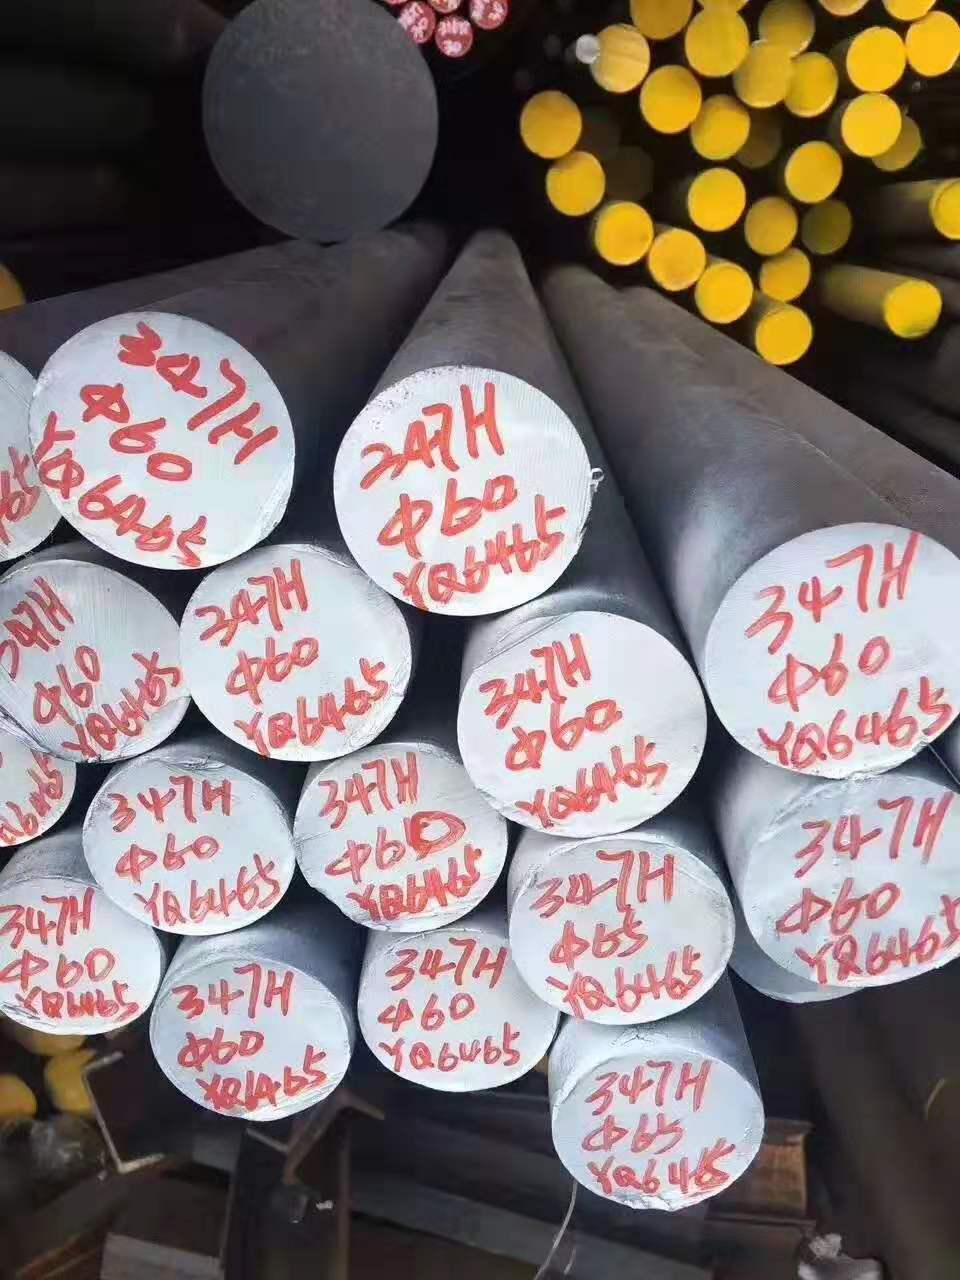 347H
Φ60
YQ6465
347H
Φ60
YQ6465
65
347H
Φ60
YQ6465
347H
Φ60
YQ6465
347H
Φ60
YQ6465
347H
Φ60
YQ6465
347H
Φ60
YQ6465
347H
Φ60
YQ6465
347H
Φ60
YQ6465
347H
Φ65
YQ6465
347H
Φ60
YQ6465
347H
Φ60
YQ6465
347H
Φ60
YQ6465
347H
Φ65
YQ6465